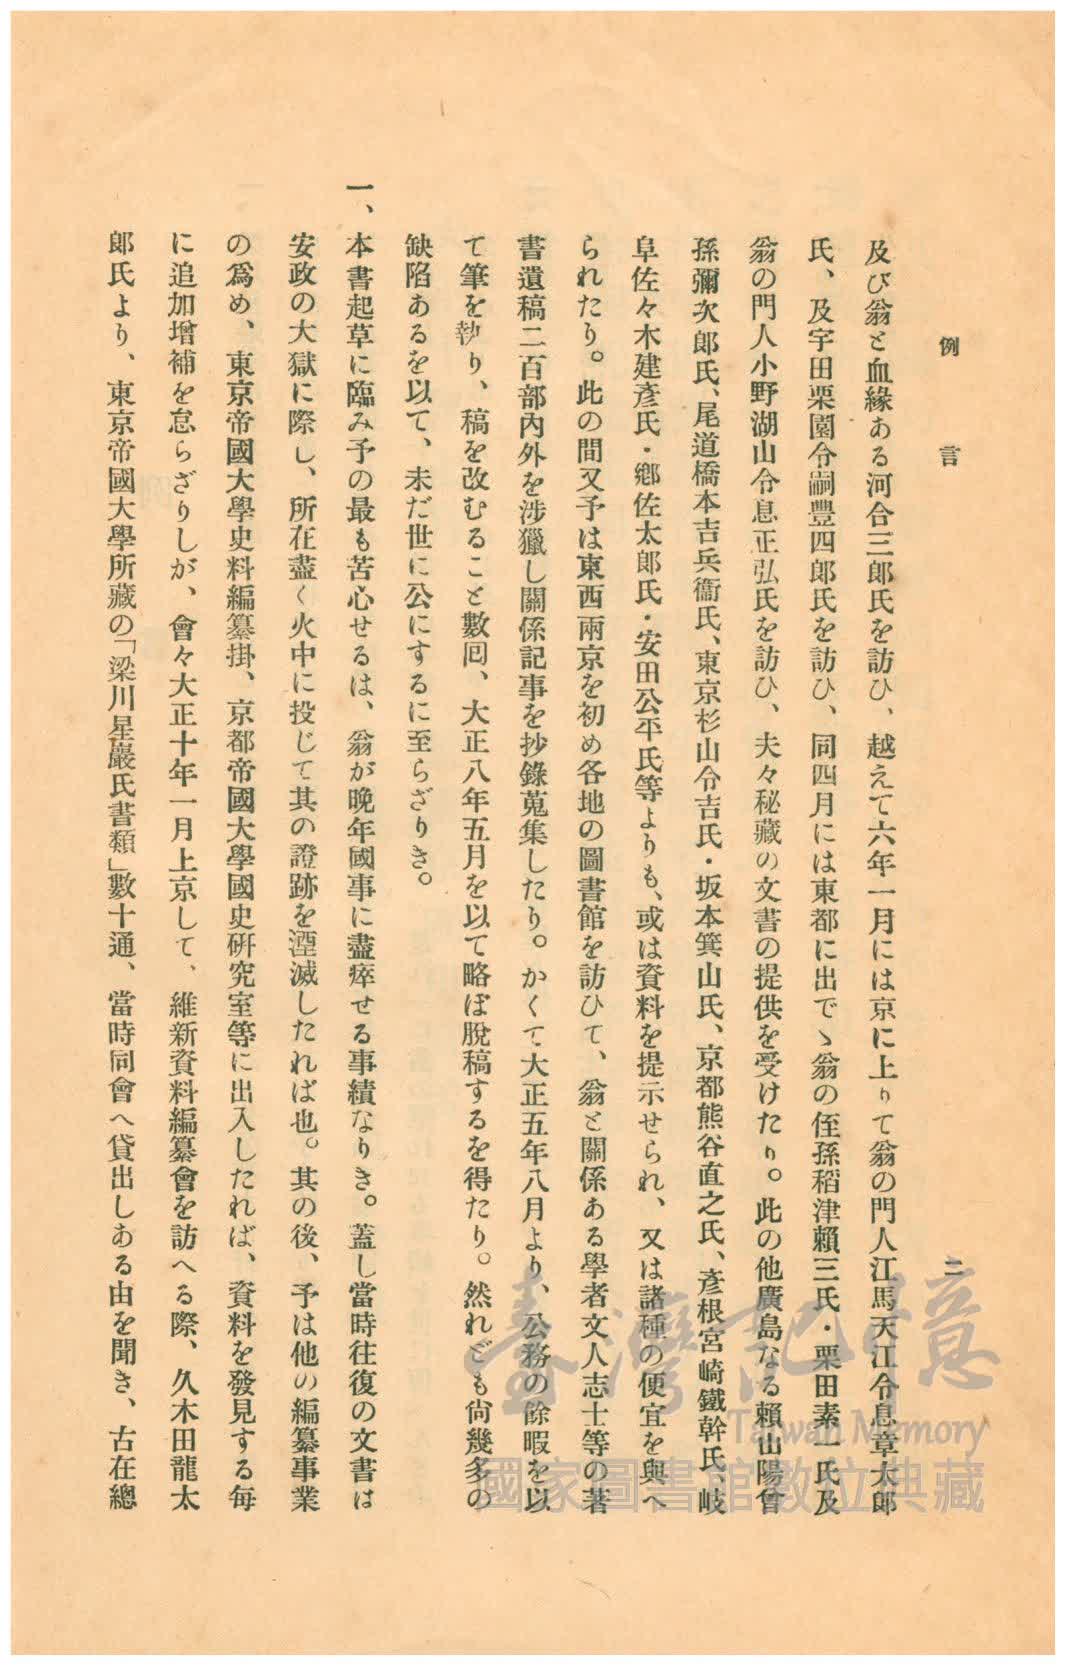 例言
二
及び翁と血緣ある河合三郎氏を訪ひ、越えて六年一月には京に上りて翁の門人江馬天江令息章太郎
氏、及宇田栗園令嗣豐四郎氏を訪ひ、同四月には東都に出でゝ翁の侄孫稻津賴三氏・栗田素一氏及
翁の門人小野湖山令息正弘氏を訪ひ、夫々秘藏の文書の提供を受けたり。此の他廣島なる賴山陽曾
孫彌次郎氏、尾道橋本吉兵衞氏、東京杉山令吉氏・坂本箕山氏、京都熊谷直之氏、彥根宮崎鐵幹氏、岐
阜佐々木建彥氏・鄕佐太郎氏・安田公平氏等よりも、或は資料を提示せられ、又は諸種の便宜を與へ
られたり。此の間又予は東西兩京を初め各地の圖書館を訪ひて、翁と關係ある學者文人志士等の著
書遺稿二百部內外を涉獵し關係記事を抄錄蒐集したり。かくて大正五年八月より、公務の餘暇を以
て筆を執り、稿を改むること數囘、大正八年五月を以て略ぼ脫稿するを得たり。然れども尙幾多の
缺陷あるを以て、未だ世に公にするに至らざりき。
一、本書起草に臨み予の最も苦心せるは、翁が晚年國事に盡瘁せる事績なりき。蓋し當時往復の文書は
安政の大獄に際し、所在盡く火中に投じて其の證跡を湮滅したれば也。其の後、予は他の編纂事業
の爲め、東京帝國大學史料編纂掛、京都帝國大學國史硏究室等に出入したれば、資料を發見する每
に追加增補を怠らざりしが、會々大正十年一月上京して、維新資料編纂會を訪へる際、久木田龍太
郎氏より、東京帝國大學所藏の「梁川星巖氏書類」數十通、當時同會へ貸出しある由を聞き、古在總
臺灣記憶
Taiwan Memory
國家圖書館數位典藏